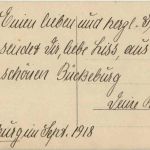 Einen lieben und herzl.
sendet Dir liebe Liss, aus
schönen Bückeburg
Deine
burg im Sept. 1918